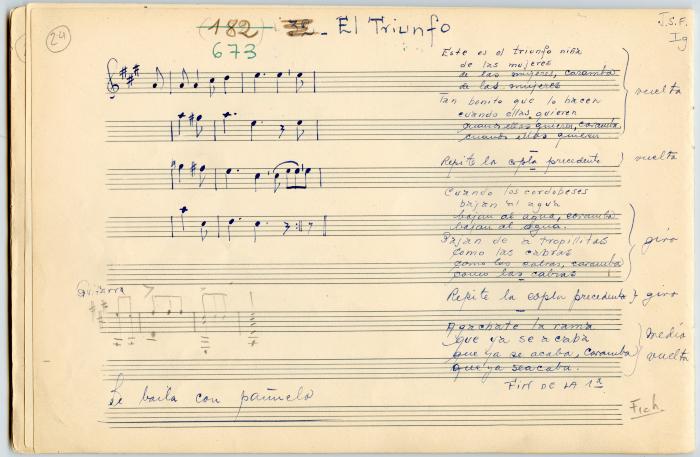 24
(182) - El Triunfo
673
J.S.F.
Ig
Este es el triunfo niña
de las mujeres
de las mujeres, caramba
de las mujeres
Tan bonito que lo hacen
cuando ellas quieren
cuando ellas quieren, caramba
cuando ellas quieren
vuelta
Repite la copla precedente } vuelta
Cuando los cordobeses
bajan al agua
bajan al agua, caramba
bajan al agua.
Bajan de a tropillitas
como las cabras
como las cabras, caramba
como las cabras
giro
Repite la copla precedente } giro
Guitarra
Agachate la rama
que ya se acaba
que ya se acaba, caramba
que ya se acaba.
media
vuelta
FIN DE LA 1ª
Se baila con pañuelo
Fich.